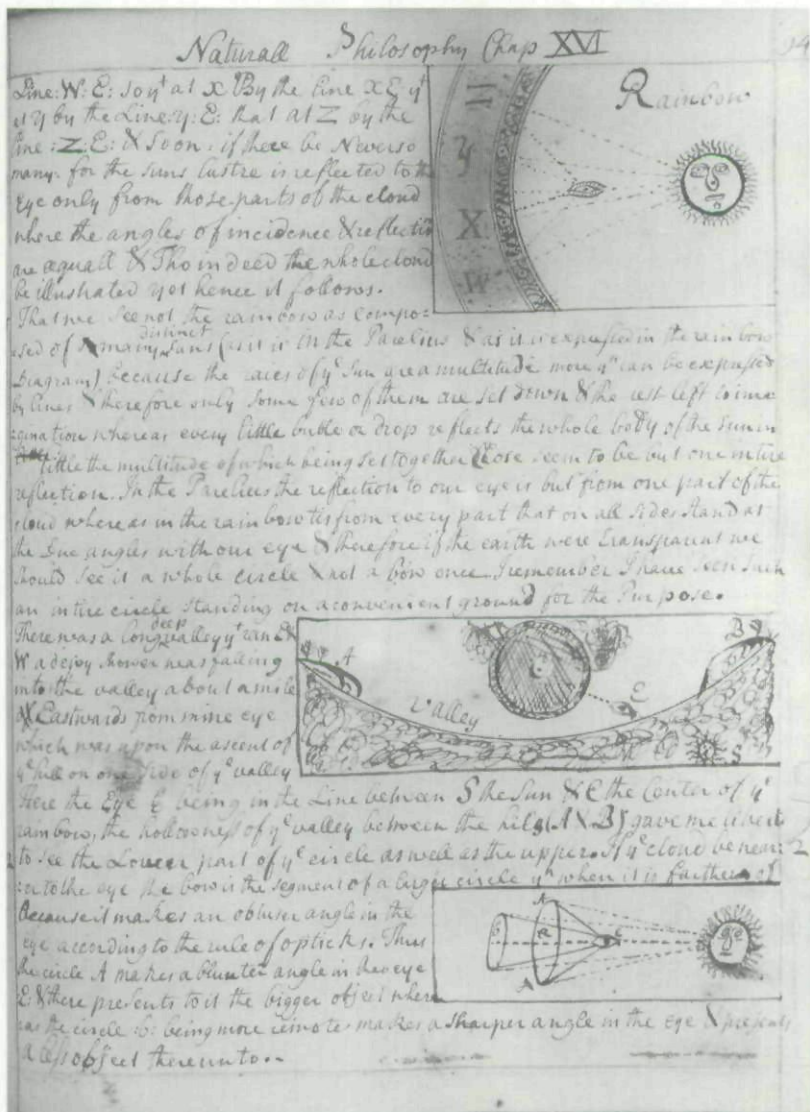 Naturall Philosophy Chap XVI
Line: W: E: so yt at X By the line X E yt
at Y by the Line: Y: E: that at Z by the
line: Z: E: & so on: if there be Never so
many: for the suns lustre is reflected to the
Eye only from those parts of the cloud
where the angles of incidence & reflectin
are æquall & Tho indeed the whole cloud
be illustrated yet hence it follows.
Rainbow
Z
Y
X
W
That we see not the rainbow as compo:
sed of many distinct suns (as it is in the Parelius & as it is expressed in the rain bow
Diagram) because the raies of ye Sun are a multitude more yn can be expressed
by lines & therefore only some few of them are set down & the rest left to ima
:gination whereas every little buble or drop reflects the whole body of the sun in
little the multitude of which being set together close seem to be but one intire
reflection. In the Parelius the reflection to our eye is but from one part of the
cloud whereas in the rain bow tis from every part that on all sides stand at
the due angles with our eye & therefore if the earth were transparent we
should see it a whole circle & not a bow once I remember I have seen such
an intire circle standing on a convenient ground for the Purpose.
There was a long deep valley yt ran E &
W a dewy shower was falling
into the valley about a mile
Eastwards from mine eye
which was upon the ascent of
ye hill on one side of ye valley
A
B
C
E
Valley
S
Here the Eye E being in the Line between S the Sun & C the Center of ye
rainbow, the hollowness of ye valley between the hils (A & B) gave me liberty
2 to see the Lower part of ye circle as well as the upper. If ye cloud be near: 2
:er to the eye the bow is the segment of a larger circle yn when it is farther of
Because it makes an obtuser angle in the
eye according to the rule of opticks. Thus
the circle A makes a blunter angle in the eye
E: & there presents to it the bigger object where
as the circle b: being more remote makes a sharper angle in the Eye & presents
a less object thereunto..
A
b
a
e
A